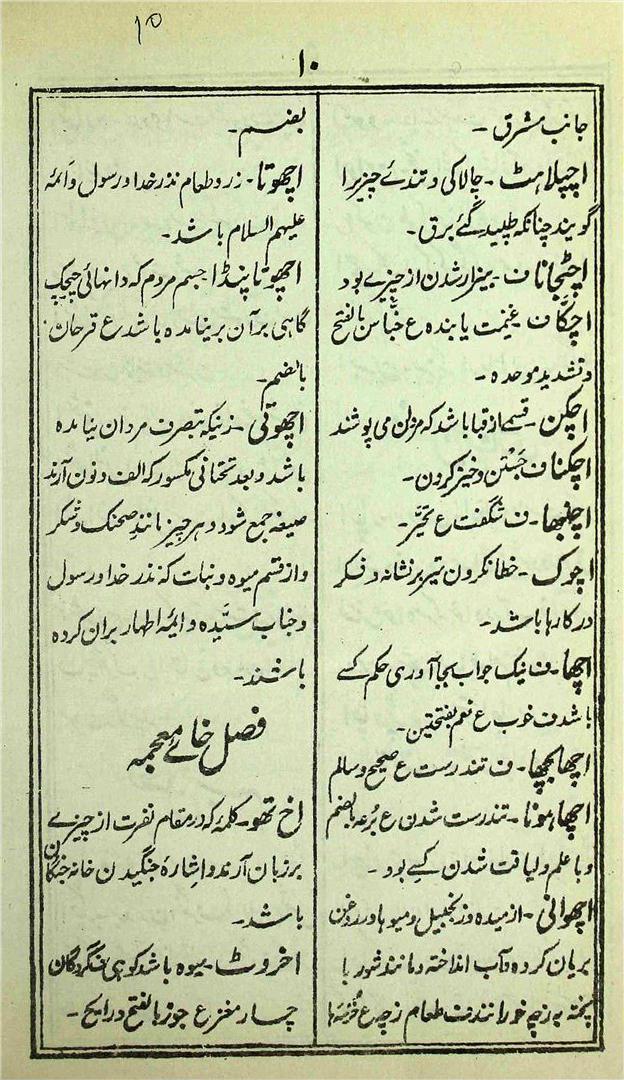 ۱۰
۱۰
جانب مشرق -
اچپلاہٹ - چالاکی و تندے چیزیرا
گویند چنانکہ طپیدگئے برق -
اچٹجانا ف - بیزار شدن از چیزے بود
اچکّا ف - غنیمت یابندہ ع خبّاس بالفتح
و تشدید موحدہ -
اچکن - قسمے از قبا باشد کہ مردان می پوشند
اچکنا ف جستن و خیز کردن -
اچنبھا - ف شگفت ع تحیّر -
اچوک - خطا نکردن تیر بر نشانہ و فکر
در کارہا باشد -
اچھا - ف نیک جواب بجا آوری حکم کسے
باشد ف خوب ع نعم بفتحتین -
اچھا بچھا - ف تندرست ع صحیح و سالم
اچھا ہونا - تندرست شدن ع برء بالضم
و با علم و لیاقت شدن کسے بود -
اچھوانی - از میدہ و زنجبیل و میوہا در روغن
بریان کردہ و آب انداختہ و مانند شوربا
پختہ بہ زچہ خورانند ف طعام زچہ ع
بضم -
اچھوتا - زر و طعام نذر خدا و رسول و ائمہ
علیہم السلام باشد -
اچھوتا پنڈا جسم مردم کہ دانہائی چیچک
گاہی بر آن برنیامدہ باشد ع قرحان
بالضم -
اچھوتی - زنیکہ بتصرف مردان نیامدہ
باشد و بعد تحتانی مکسور کہ الف و نون آرند
صیغہ جمع شود و ہر چیز مانند صحنک و شکر
و از قسم میوہ و نبات کہ نذر خدا و رسول
و جناب سیّدہ و ائمہ اطہار بران کردہ
باشند -
فصل خائے معجمہ
اخ تھو - کلمۂ کہ در مقام نفرت از چیزے
بر زبان آرند و اشارۂ جنگیدن خانہ جنگان
باشد -
اخروٹ - میوہ باشد کوہی ف گردگان
چار مغز ع جوز بالفتح در اباح -